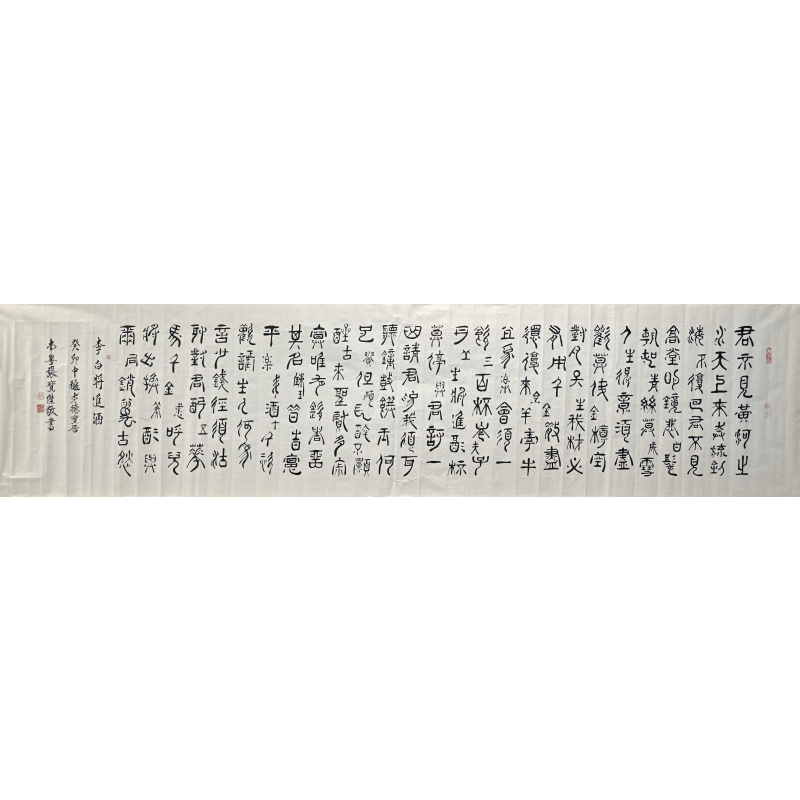 君不見黃河之
水天上來奔流到
海不復回君不見
高堂明鏡悲白髮
朝如青絲暮成雪
人生得意須盡
歡莫使金樽空
對月天生我材必
有用千金散盡
還復來烹羊宰牛
且為樂會須一
飲三百杯岑夫子
丹丘生將進酒杯
莫停與君歌一
曲請君為我傾耳
聽鐘鼓饌玉何
足貴但願長醉不願
醒古來聖賢多寂
寞唯有飲者留
其名陳王昔時宴
平樂斗酒十千恣
歡謔主人何為
言少錢徑須沽
取對君酌五花
馬千金裘呼兒
將出換美酒與
爾同銷萬古愁
李白將進酒
癸卯中秋
南粵張寶傑敬書